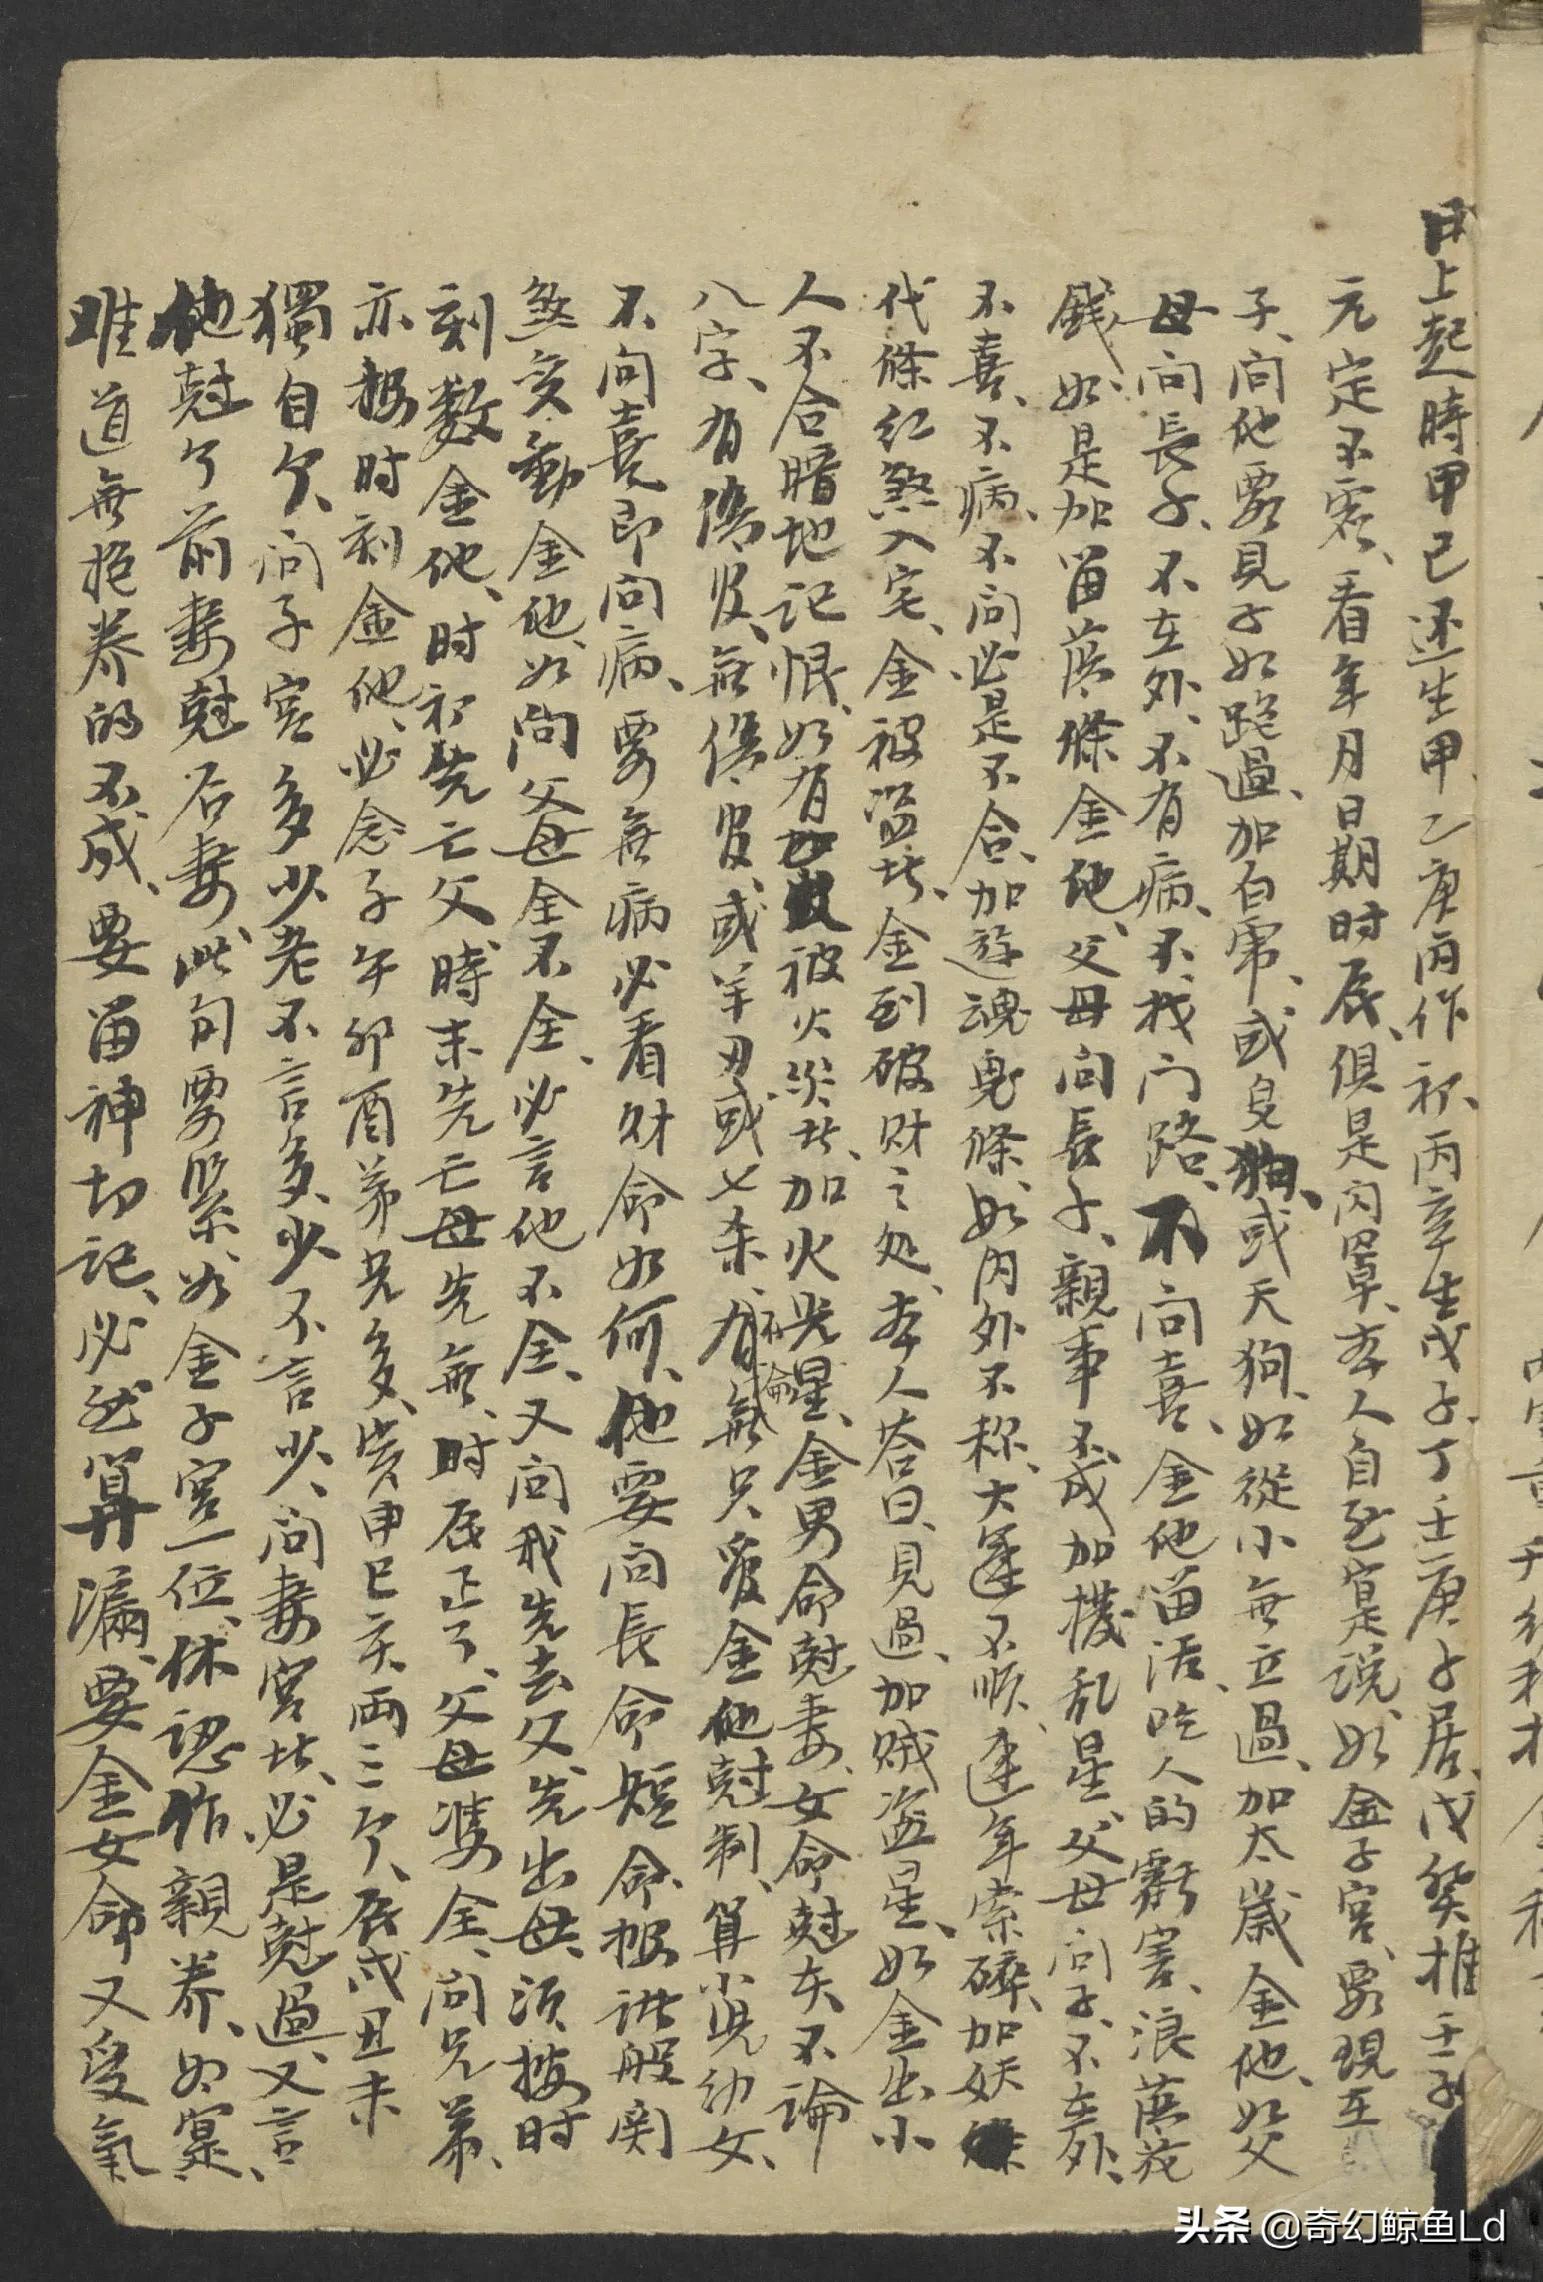 日上起時甲己还生甲乙庚丙作初丙辛生戊子丁壬庚子居戊癸推壬子
元定不零看年月日期时辰俱是内罩本人自己寔是说如金子宮要現在
子问他要見子如跑過加白帝或皮狗或天狗如從小無立過加太歲金他如父
母问長子不在外不有病不找门路不问喜金他留活吃人的虧害浪蕩花
錢如是加留蕩條金他父母问長子親事不成加擾乱星父母问子不在外
不喜不病不问必是不合加遊魂鬼條如内外不称大運不順連年索碎加妖條
代條紅煞入宅金被盜性金到破财之处本人答曰見過加賊盜星如金出小
人不合暗地记恨如有被火災性加火光星金男命尅妻女命尅夫不論
八字有傷没無傷没或羊刃或七杀有無只要金他尅制算小児幼女
初命
不问喜即问病要無病必看财命如何他要问長命短命报诳般関
煞亥動金他如问父母全不全必言他不全又问我先去父先出母須按时
刻数金他时初先亡父時末先亡母先無时辰正了父母隻全问兄弟
亦按时刻金他必念子午卯酉弟兄多寅申巳亥两三个辰戌丑未
獨自个问子宮多少老不言多少不言少问妻宮性必是尅過又言
他尅个前妻尅后妻此句要緊如金子宮一位休認作親养如寔
唯道無抱养的不成要留神切记必然算漏要金女命又受氣
头条 @奇幻鲸鱼Ld